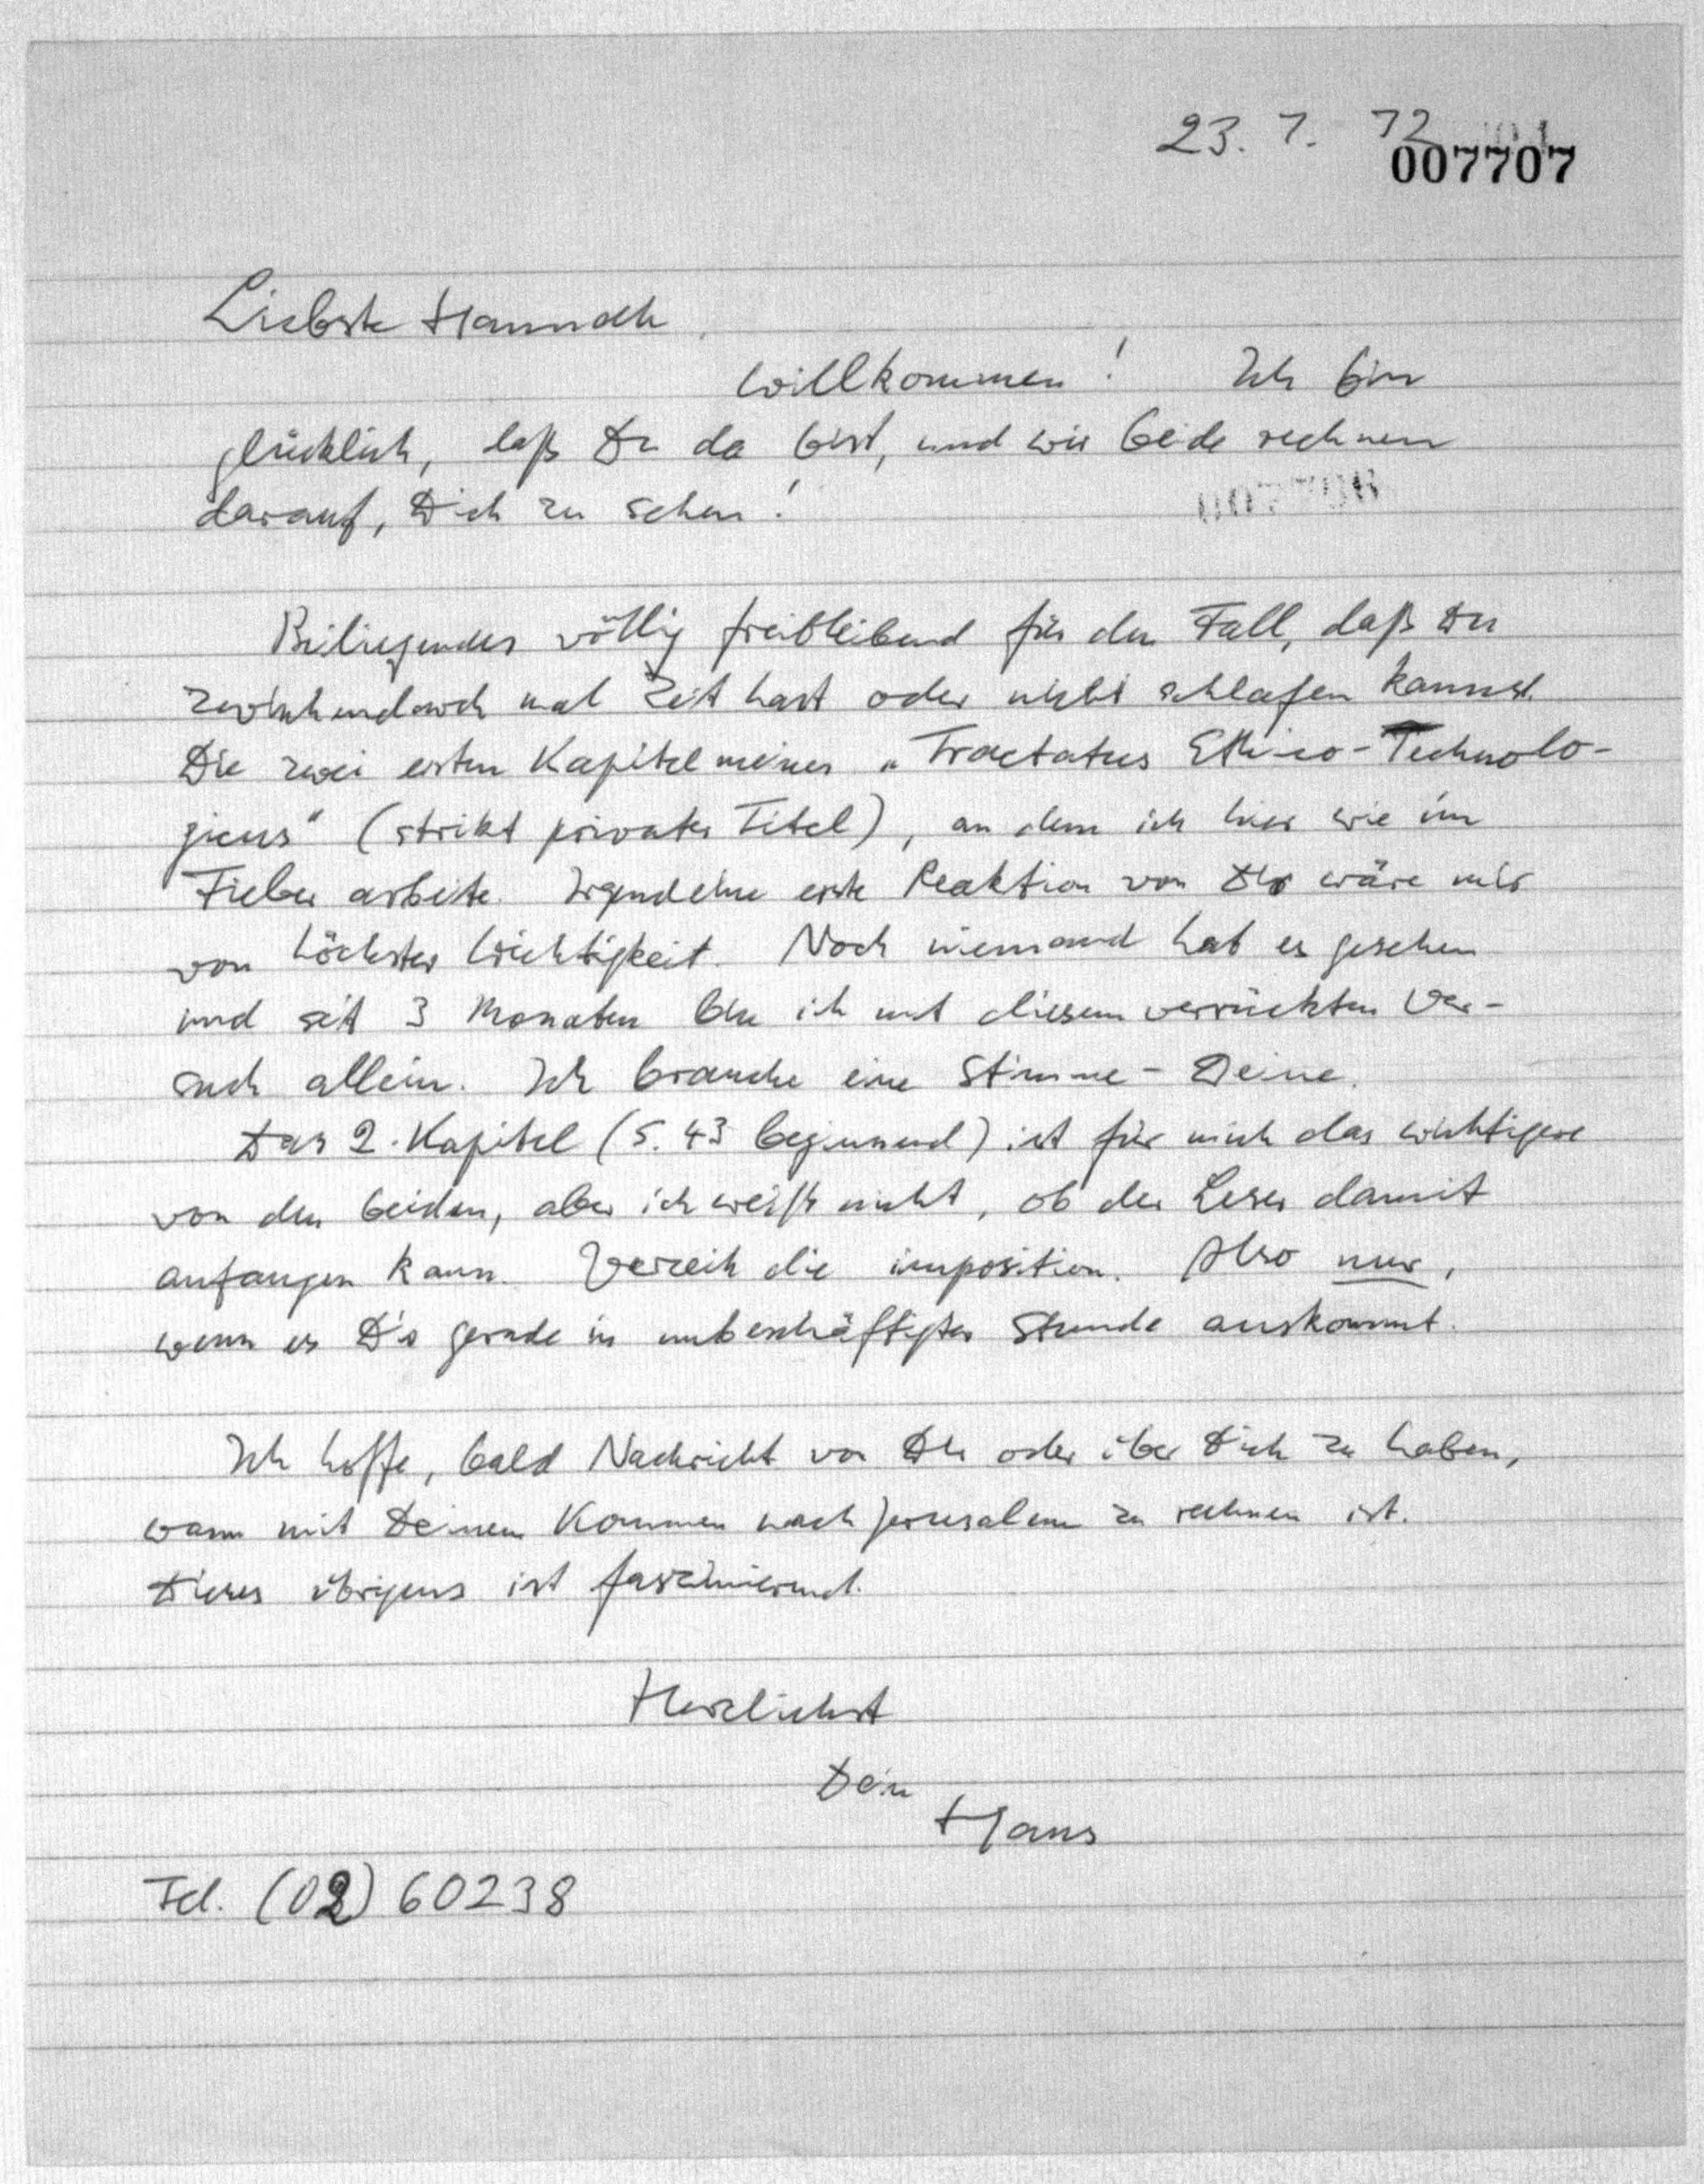 23. 7. 72
007707
Liebste Hannah,
Willkommen! Ich bin
glücklich, daß Du da bist, und wir beide rechnen
darauf, Dich zu sehen!
Beiliegendes völlig freibleibend für den Fall, daß Du
zwischendurch mal Zeit hast oder nicht schlafen kannst.
Die zwei ersten Kapitel meines „Tractatus Ethico-Technolo-
gicus" (strikt privater Titel), an dem ich hier wie im
Fieber arbeite. Irgendeine erste Reaktion von Dir wäre mir
von höchster Wichtigkeit. Noch niemand hat es gesehen
und seit 3 Monaten bin ich mit diesem verrückten Ver-
such allein. Ich brauche eine Stimme - Deine.
Das 2. Kapitel (S. 43 beginnend) ist für mich das wichtigere
von den beiden, aber ich weiß nicht, ob der Leser damit
anfangen kann. Verzeih die imposition. Also nur,
wenn es Dir gerade in unbeschäftigter Stunde auskommt.
Ich hoffe, bald Nachricht von Dir oder über Dich zu haben,
wann mit Deinem Kommen nach Jerusalem zu rechnen ist.
Dieses übrigens ist faszinierend.
Herzlichst
Dein
Hans
Tel. (02) 60238